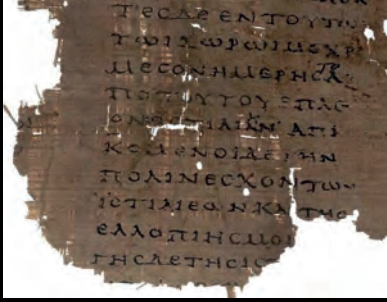 ΤΕϹΔΕΕΝΤΟΥΤω
ΤωΙΧωΡωΙΜΕΧΡ
ΜΕϹΟΝΗΜΕΡΗϹΑ
ΠΟΤΟΥΤΟΥΕΠΛΕ
ΟΝΕϹΤΙΑΙΗΝΑΠΙ
ΚΟΜΕΝΟΙΔΕΤΗΝ
ΠΟΛΙΝΕϹΧΟΝΤω
ΙϹΤΙΑΙΕωΝΚΑΙΤΗϹ
ΕΛΛΟΠΙΗϹΜΟΙ
ΓΗϹΔΕΤΗϹΙϹ